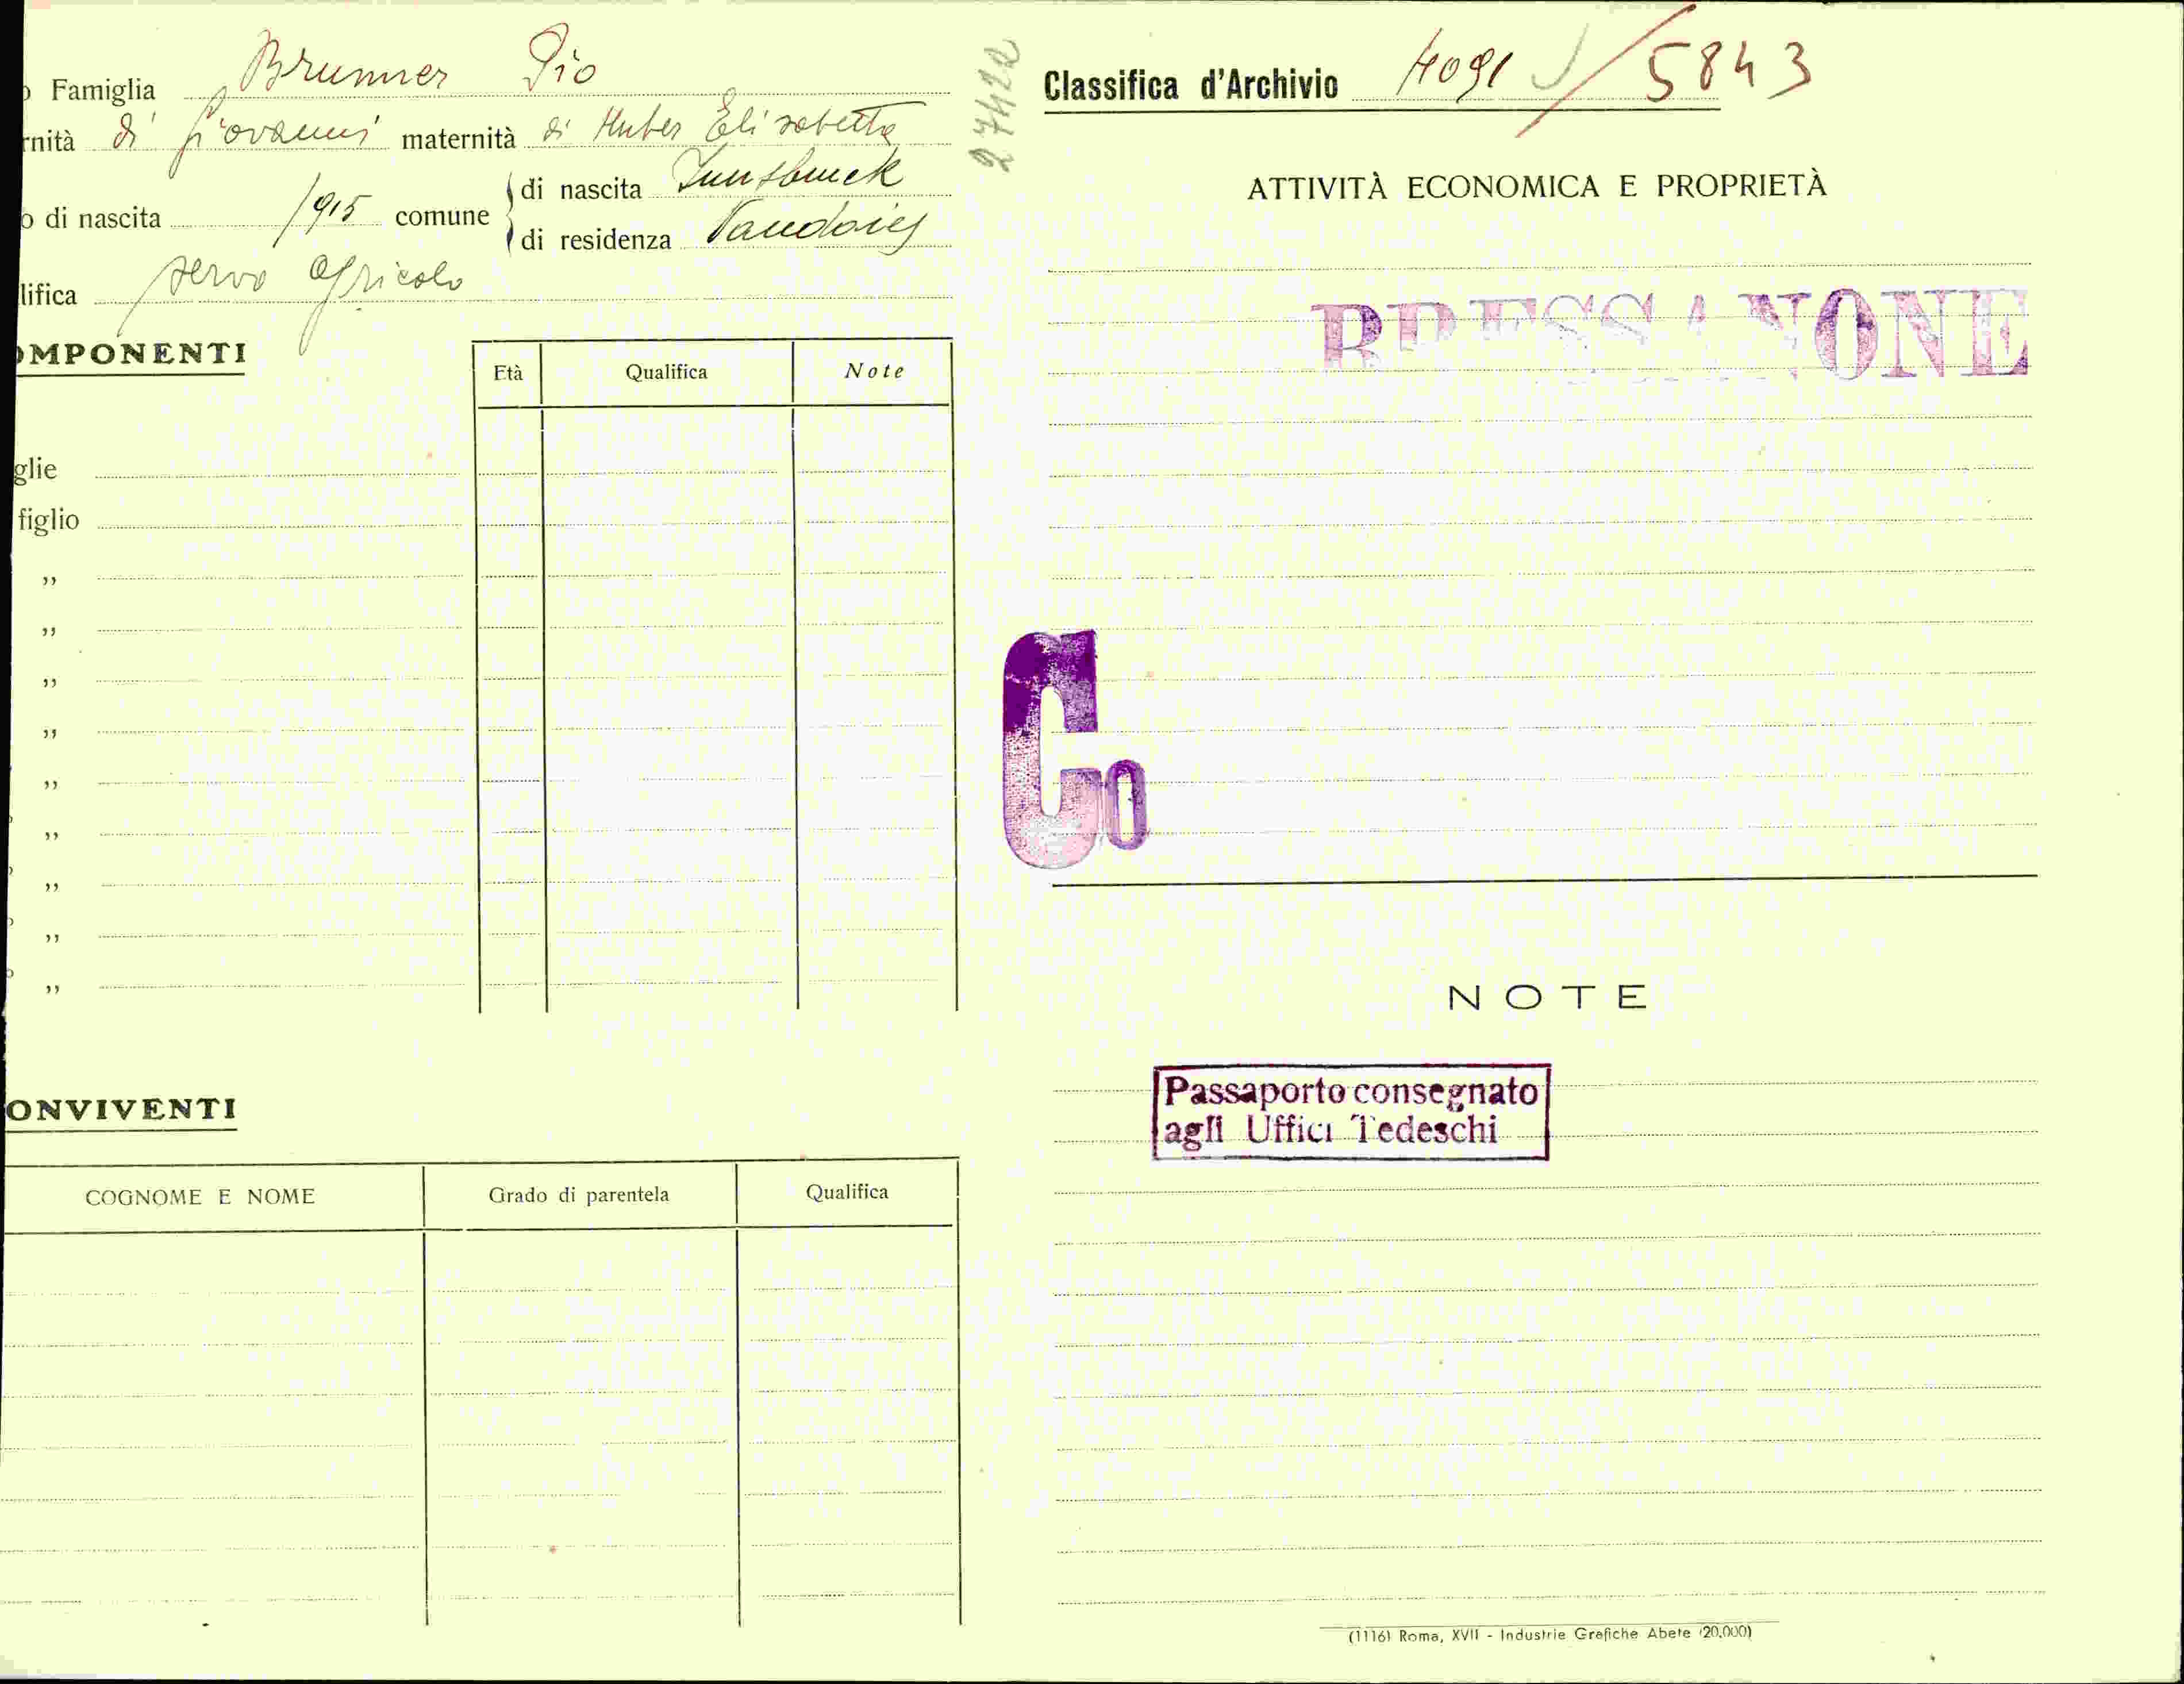 o Famiglia Brunner Pio
rnità di Giovanni maternità di Huber Elisabetta
o di nascita 1915 comune
di nascita Innsbruck
di residenza Vandoies
lifica servo agricolo
OMPONENTI
Età Qualifica Note
glie
figlio
,,
,,
,,
,,
,,
,,
,,
,,
,,
ONVIVENTI
COGNOME E NOME Grado di parentela Qualifica
27422
Classifica d'Archivio 4091 / 5843
ATTIVITÀ ECONOMICA E PROPRIETÀ
BRESSANONE
Co
NOTE
Passaporto consegnato
agli Uffici Tedeschi
(1116) Roma, XVII - Industrie Grafiche Abete (20.000)